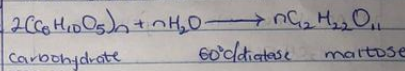 2(C6H10O5)n + nH2O → nC12H22O11
carbohydrate 60°c/diatase maltose